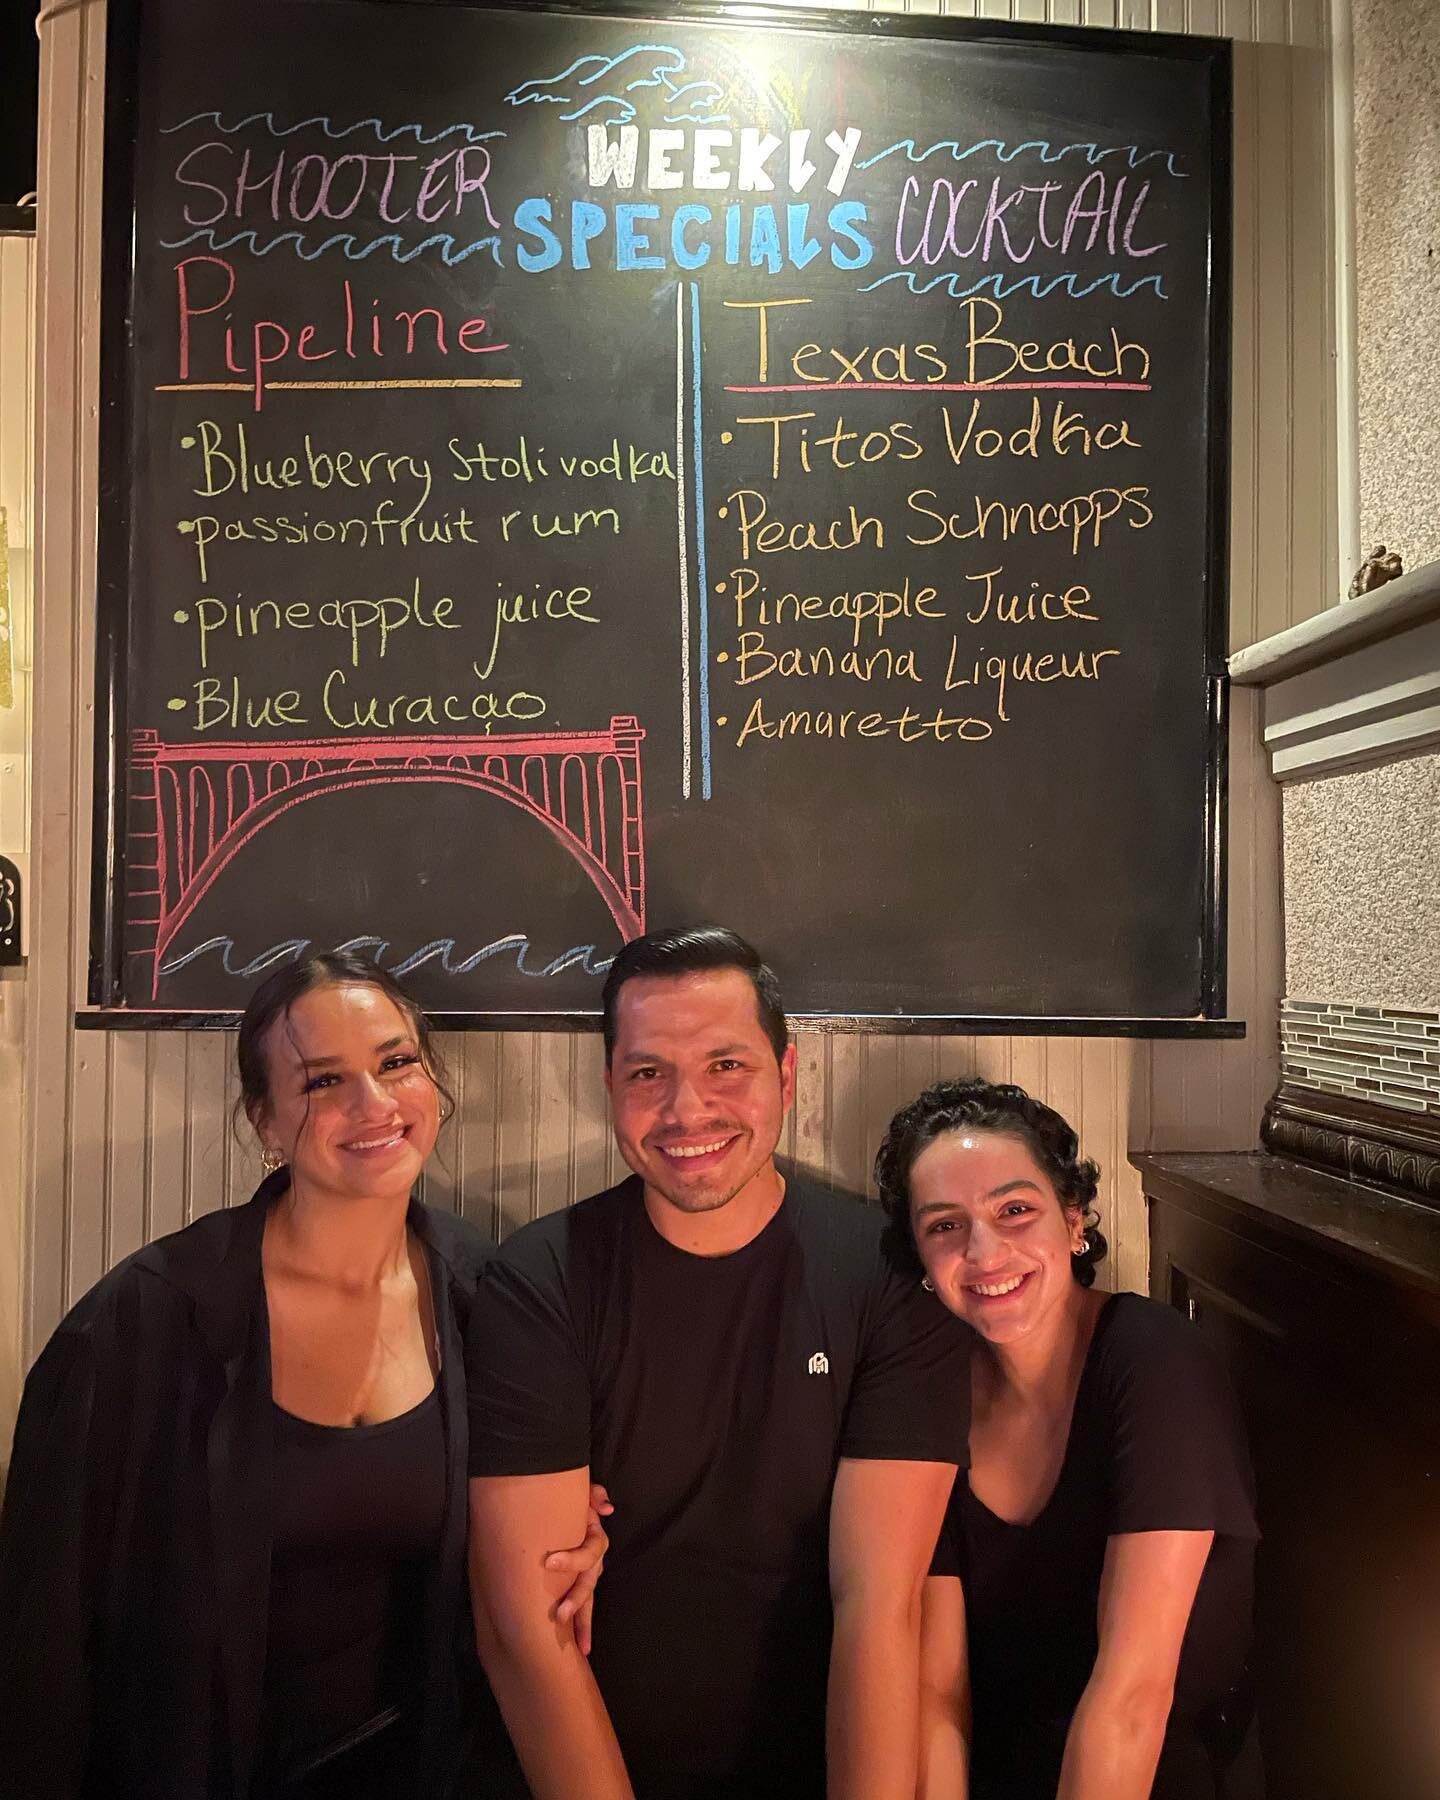 WEEKLY
SPECIALS
SHOOTER
Pipeline
•Blueberry Stoli vodka
•passionfruit rum
•pineapple juice
•Blue Curaçao
COCKTAIL
Texas Beach
•Titos Vodka
•Peach Schnapps
•Pineapple Juice
•Banana Liqueur
•Amaretto